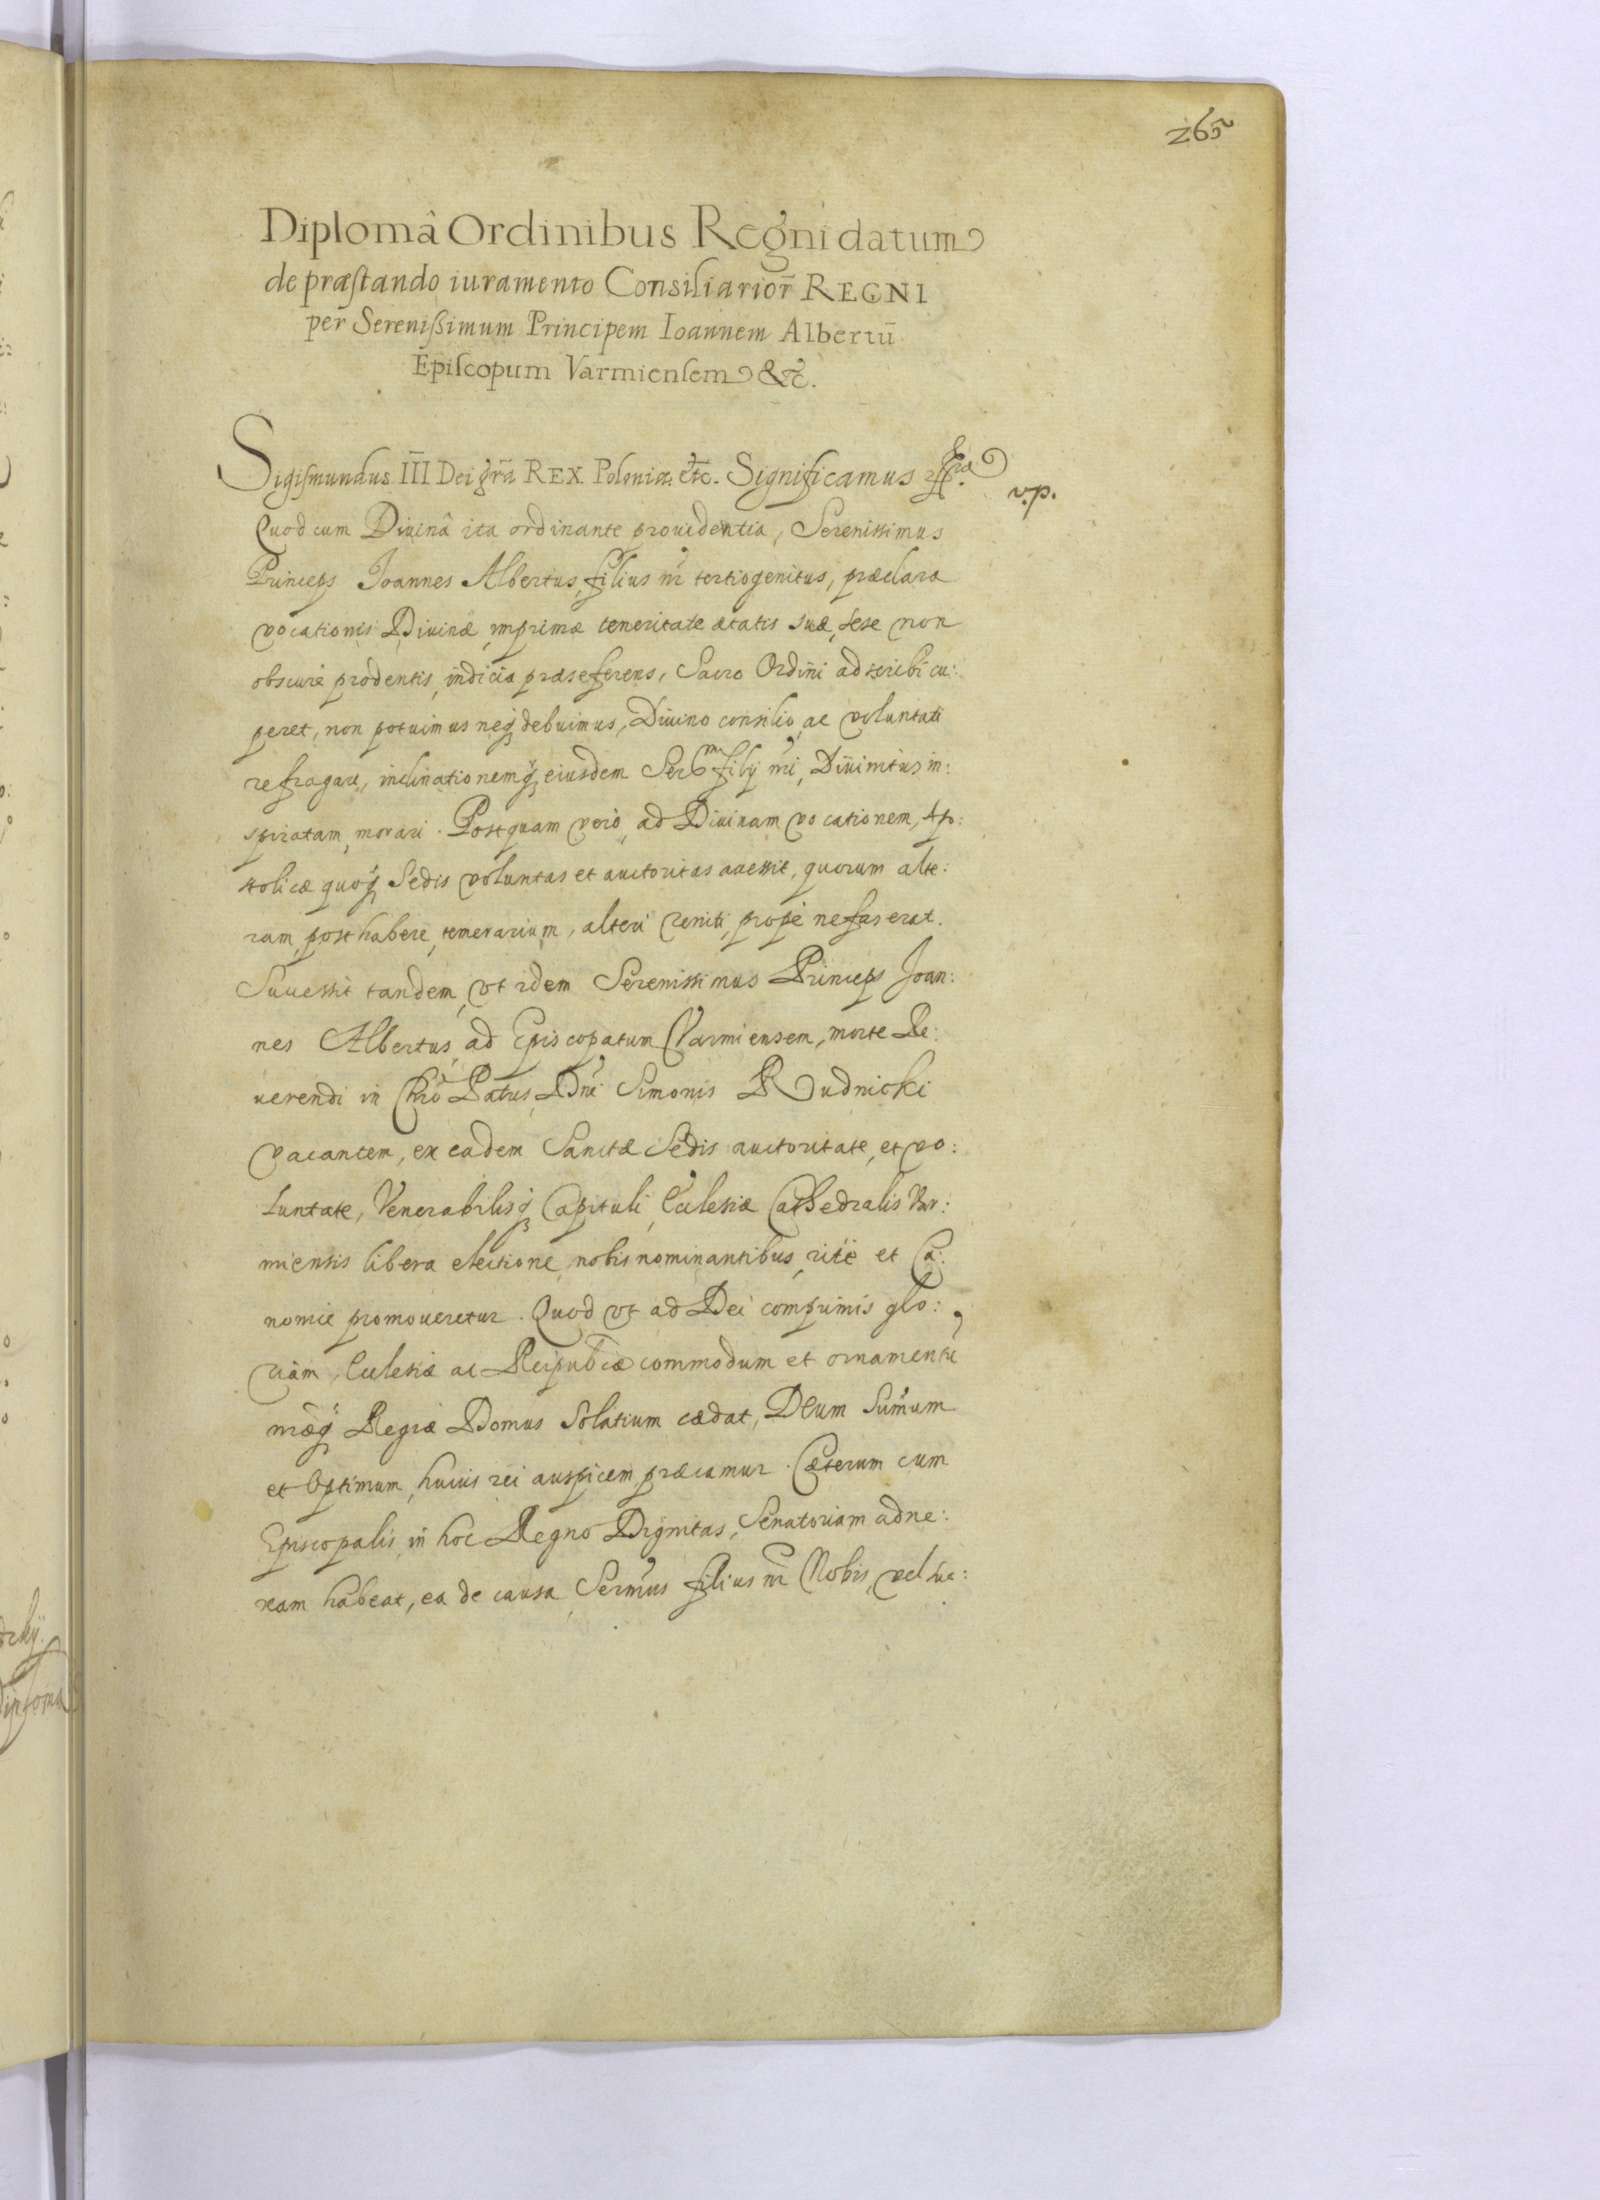 265
Diplomâ Ordinibus Regni datum
de præstando iuramento Consiliarior̃ REGNI
per Serenißimum Principem Ioannem Albertū
Episcopum Varmiensem &c̃.
Sigismundus III Dei gr̃a REX Poloniæ etc. Significamus
v.p.
Quod cum Diuinâ ita ordinante prouidentia, Serenissimus
Princeps Joannes Albertus, filius nr̃ tertiogenitus, præclara
vocationis Diuinæ, inprimæ teneritate ætatis suæ, sese non
obscurè prodentis, indicia præseferens, Sacro Ordini adscribi cu:
peret, non potuimus neq₃ debuimus, Diuino consilio, ac voluntati
refragari, inclinationemq₃ eiusdem Ser^mi filij nr̃i, Diuinitus in:
spiratam, morari. Postquam verò, ad Diuinam vocationem, Apo:
stolicæ quoq₃ Sedis voluntas et auctoritas accessit, quorum alte:
ram, posthabere, temerarium, alteri reniti, propè nefas erat.
Successit tandem, vt idem Serenissimus Princeps Joan:
nes Albertus, ad Episcopatum Varmiensem, morte Re:
uerendi in Chr̃o Patris, Dñi Simonis Rudnicki
vacantem, ex eadem Sanctæ Sedis auctoritate, et vo:
luntate, Venerabilisq₃ Capituli, Ecclesiæ Cathedralis Var:
miensis libera electione, nobis nominantibus, ritè et Ca:
nonicè promoueretur. Quod vt ad Dei comprimis glo:
riam, Ecclesiæ ac Reipub̃cæ commodum et ornamentũ
nr̃æq₃ Regiæ Domus Solatium cædat, Deum Sum̃um
et Optimum, huius rei auspicem præcamur. Cæterum cum
Episcopalis, in hoc Regno Dignitas, Senatoriam adne:
xam habeat, ea de causa, Serm̃us filius nr̃ Nobis, vel suc: